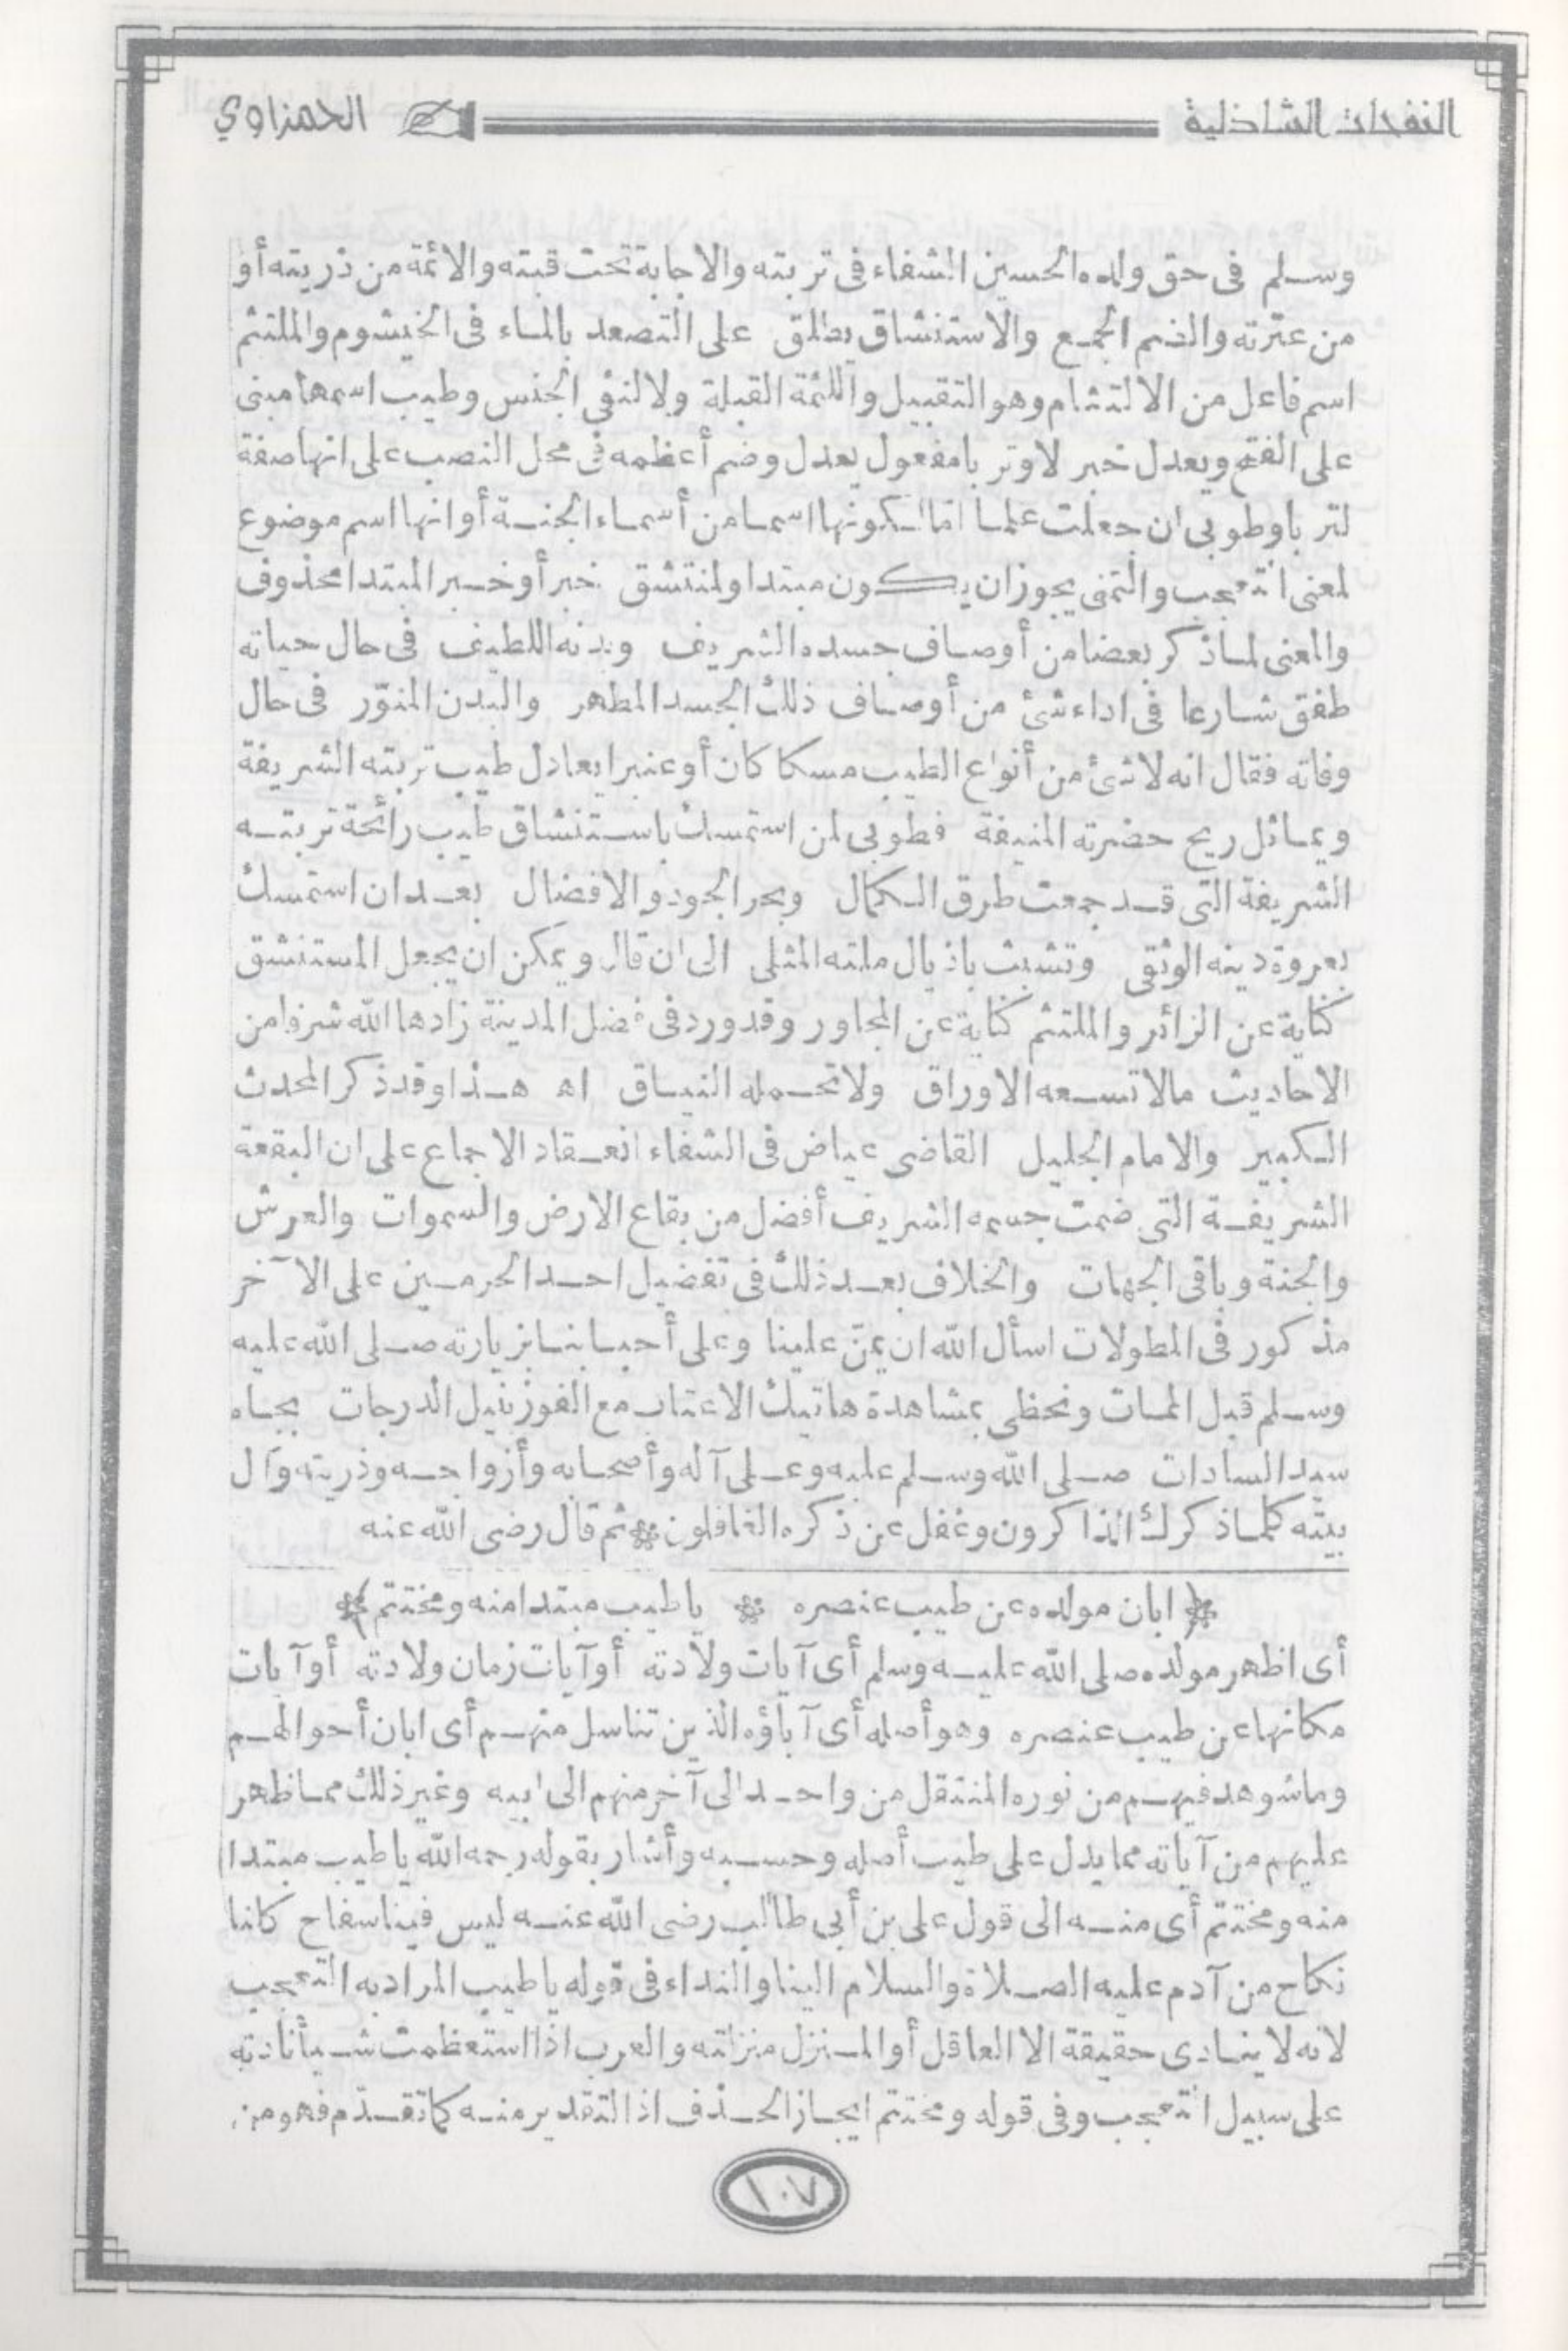 النفحات الشاذلية الحمزاوي
وسلم فى حق ولده الحسين الشفاء فى تربته والاجابة تحت قبته والائمة من ذريته أو
من عترته والضم الجمع والاستنشاق يطلق على التصعد بالماء فى الخيشوم والملتثم
اسم فاعل من الالتثام وهو التقبيل واللثمة القبلة ولا لنفى الجنس وطيب اسمها مبنى
على الفتح ويعدل خبر لا وتربا مفعول يعدل وضم أعظمه فى محل النصب على انها صفة
لتربا وطوبى ان جعلت علما امالكونها اسما من أسماء الجنة أو انها اسم موضوع
لمعنى التعجب والتمنى يجوزان يكون مبتدا ولمنتشق خبر أو خبر المبتدا محذوف
والمعنى لماذكر بعضا من أوصاف جسده الشريف وبدنه اللطيف فى حال حياته
طفق شارعا فى اداء شئ من أوصاف ذلك الجسد المطهر والبدن المنوّر فى حال
وفاته فقال انه لا شئ من أنواع الطيب مسكا كان أو عنبرا يعادل طيب تربته الشريفة
ويماثل ريح حضرته المنيفة فطوبى لمن استمسك باستنشاق طيب رائحة تربته
الشريفة التى قد جمعت طرق الكمال وبحر الجود والافضال بعد ان استمسك
بعروة دينه الوثقى وتشبث باذيال ملته المثلى الى ان قال ويمكن ان يجعل المستنشق
كناية عن الزائر والملتثم كناية عن المجاور وقد ورد فى فضل المدينة زادها الله شرفا من
الاحاديث مالا تسعه الاوراق ولا تحمله النياق اه هذا وقد ذكر المحدث
الكبير والامام الجليل القاضى عياض فى الشفاء انعقاد الاجماع على ان البقعة
الشريفة التى ضمت جسمه الشريف أفضل من بقاع الارض والسموات والعرش
والجنة وباقى الجهات والخلاف بعد ذلك فى تفضيل احد الحرمين على الآخر
مذكور فى المطولات اسأل الله ان يمنّ علينا وعلى أحبابنا بزيارته صلى الله عليه
وسلم قبل الممات ونحظى بمشاهدة هاتيك الاعتاب مع الفوز بنيل الدرجات بجاه
سيد السادات صلى الله وسلم عليه وعلى آله وأصحابه وأزواجه وذريته وآل
بيته كلماذكرك الذاكرون وغفل عن ذكره الغافلون ❊ ثم قال رضى الله عنه
﴿ ابان مولده عن طيب عنصره ❊ يا طيب مبتدا منه ومختتم ﴾
أى اظهر مولده صلى الله عليه وسلم أى آيات ولادته أو آيات زمان ولادته أو آيات
مكانها عن طيب عنصره وهو أصله أى آباؤه الذين تناسل منهم أى ابان أحوالهم
وما شوهد فيهم من نوره المنتقل من واحد الى آخر منهم الى ابيه وغير ذلك مما ظهر
عليهم من آياته مما يدل على طيب أصله وحسبه وأشار بقوله رحمه الله يا طيب مبتدا
منه ومختتم أى منه الى قول على بن أبى طالب رضى الله عنه ليس فينا سفاح كلنا
نكاح من آدم عليه الصلاة والسلام الينا والنداء فى قوله يا طيب المراد به التعجب
لانه لا ينادى حقيقة الا العاقل أو المنزل منزلته والعرب اذا استعظمت شيأ نادته
على سبيل التعجب وفى قوله ومختتم ايجاز الحذف اذ التقدير منه كما تقدّم فهو من
١٠٧